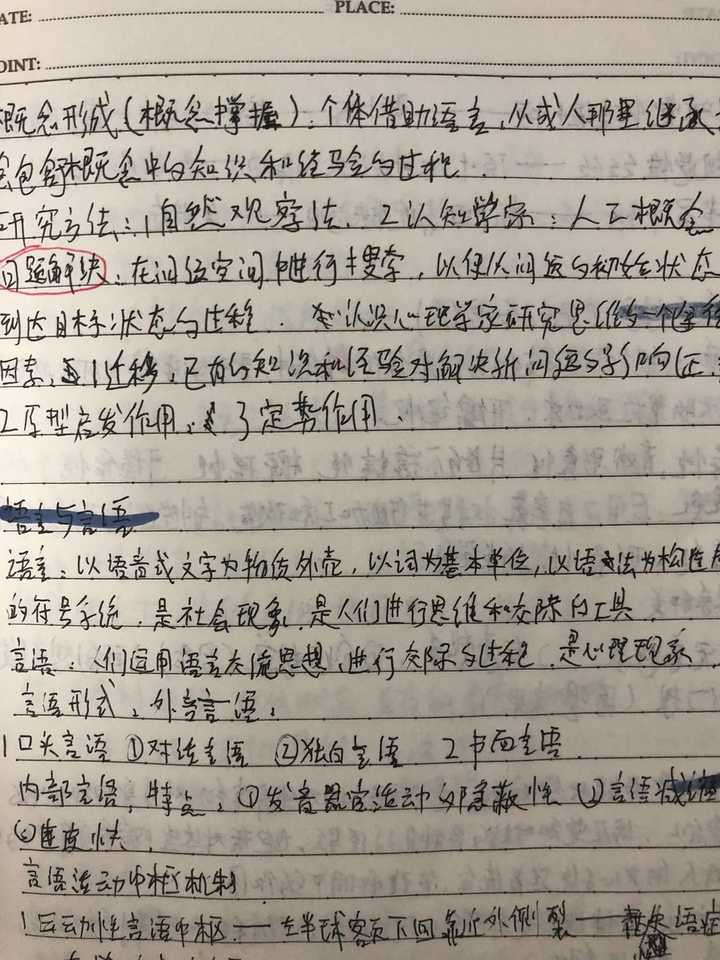 ATE: PLACE:
OINT:
概念形成(概念掌握):个体借助语言,从成人那里继承
包含概念中的知识和经验的过程.
研究方法:1自然观察法. 2认知学家:人工概念
问题解决:在问题空间中进行搜索,以便从问题的初始状态
到达目标状态的过程. 认识心理学家研究思维的一个途径
因素:1迁移:已有的知识和经验对解决新问题的影响(正.
2原型启发作用. 3定势作用.
语言与言语
语言:以语音或文字为物质外壳,以词为基本单位,以语法为构造
的符号系统.是社会现象.是人们进行思维和交际的工具.
言语:人们运用语言交流思想,进行交际的过程.是心理现象
言语形式:外言语:
1口头言语 ①对话言语 ②独白言语 2书面言语
内部言语:特点:①发音器官活动的隐蔽性 ②言语减缩
③速度快.
言语活动中枢机制
1运动性言语中枢——左半球额下回靠近外侧裂——失语症